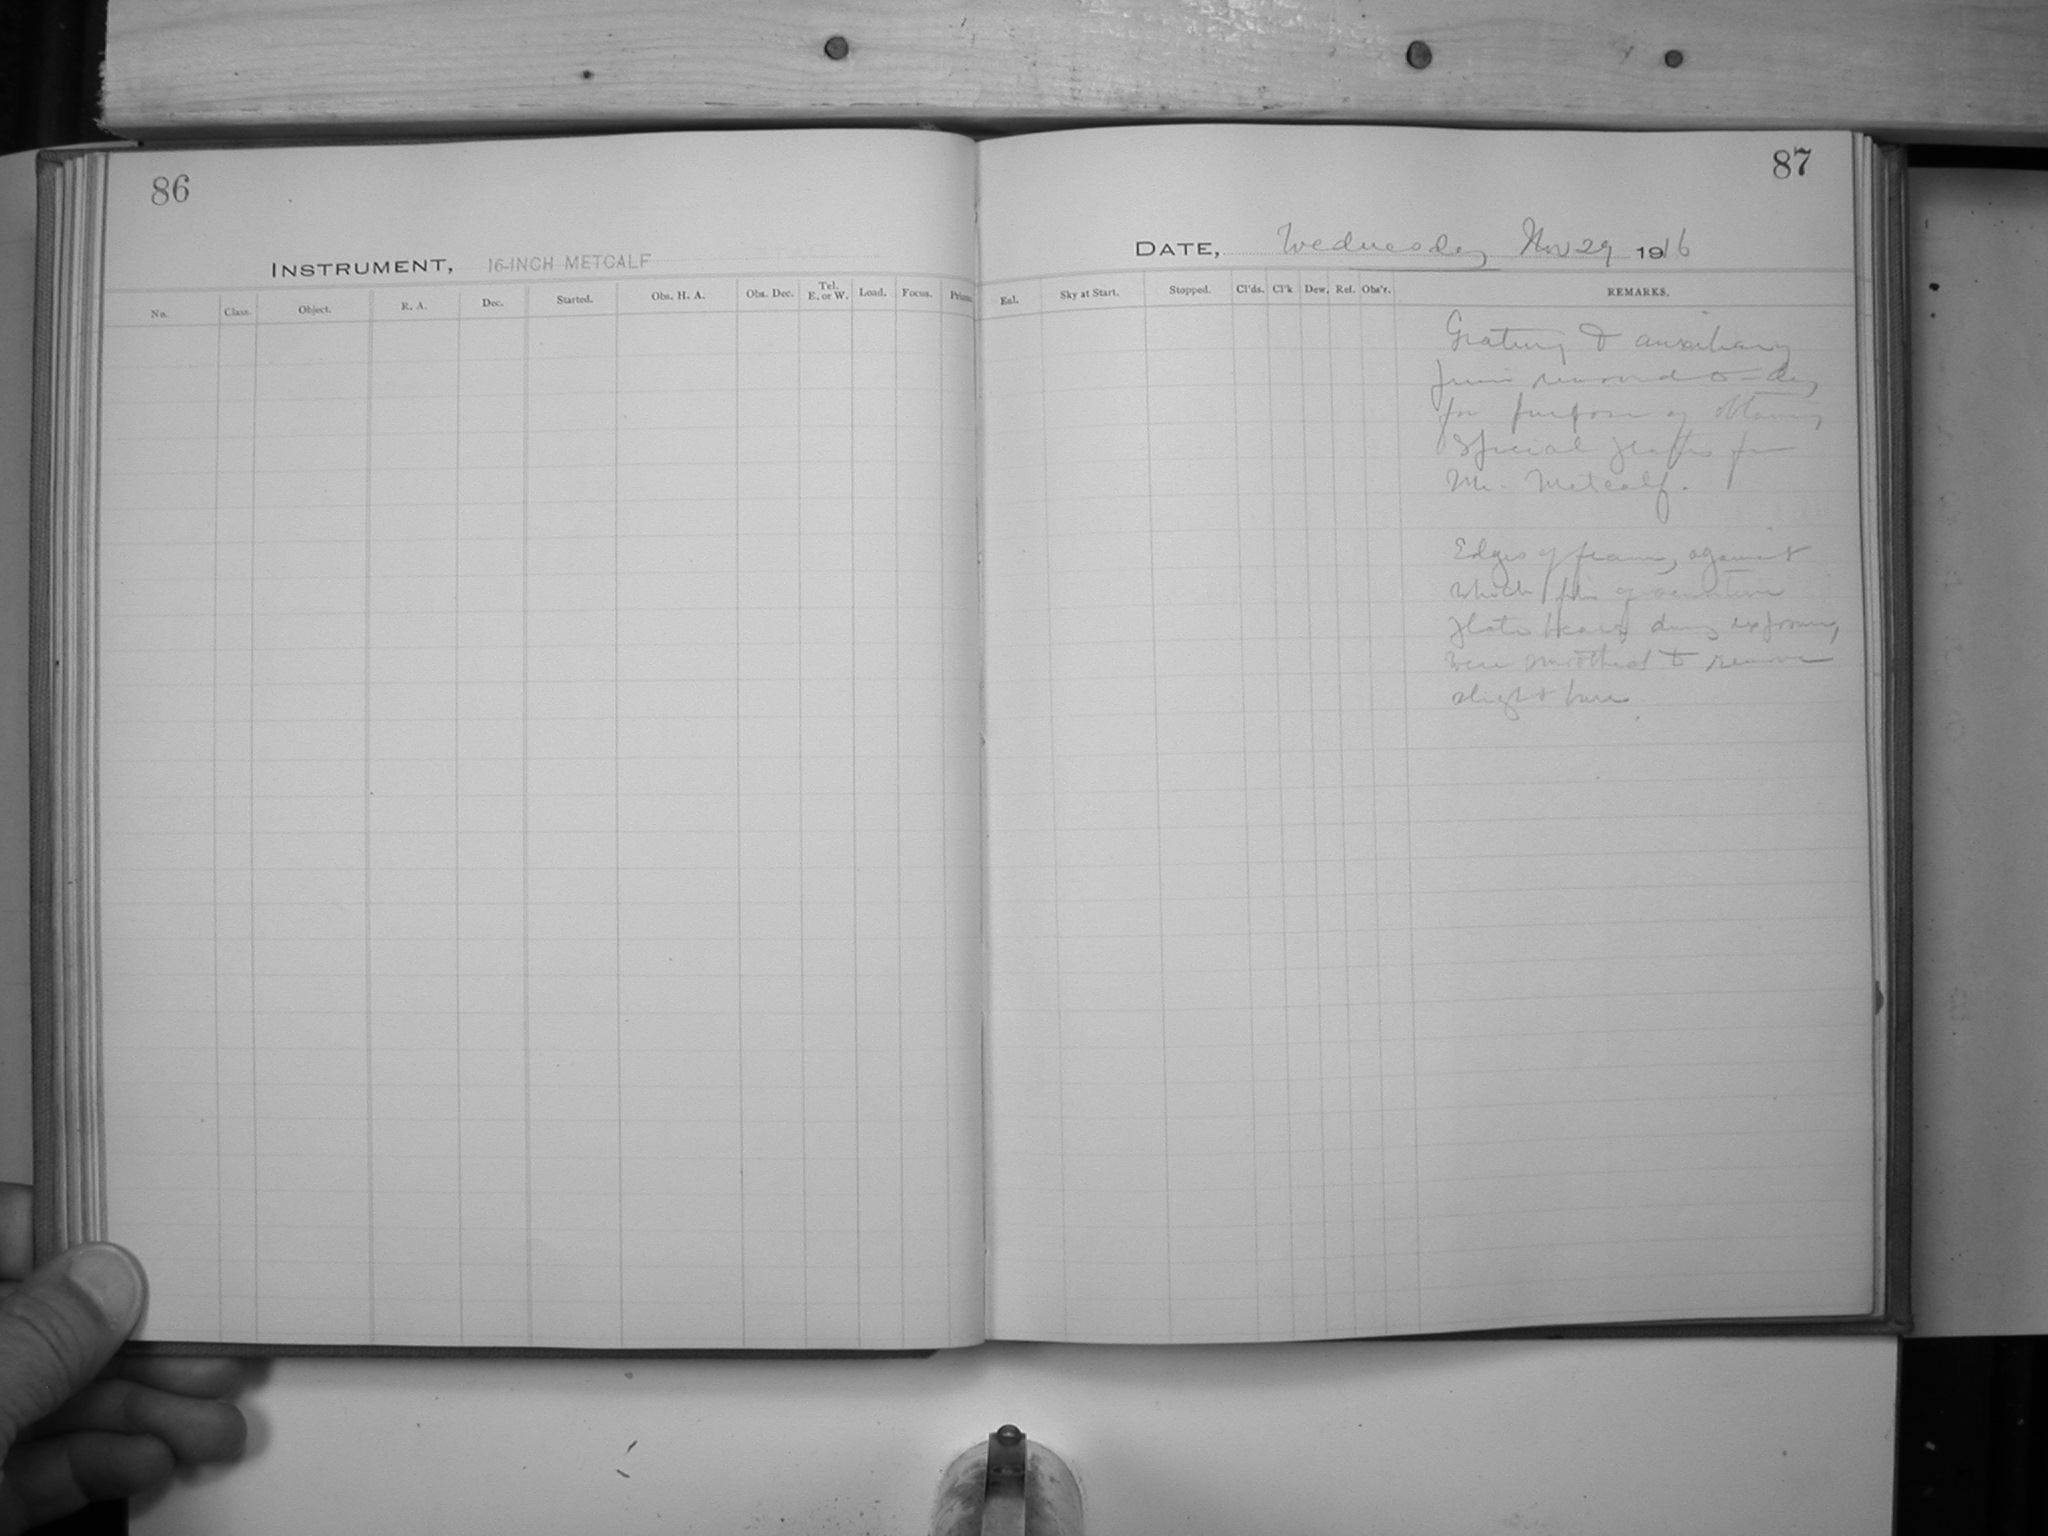 86
INSTRUMENT, 16-INCH METCALF
No. Class. Object. R. A. Dec. Started. Obs. H. A. Obs. Dec. Tel. E. or W. Load. Focus. Prism.
87
DATE, Wednesday Nov 29 1916
Eal. Sky at Start. Stopped. Cl'ds. Cl'k Dew. Ref. Obs'r. REMARKS.
Grating & auxiliary
prism removed to-day
for purpose of obtaining
special plates for
Mr. Metcalf.
Edges of frame, against
which film of sensitive
plate bears during exposure,
were smoothed to remove
slight burs.